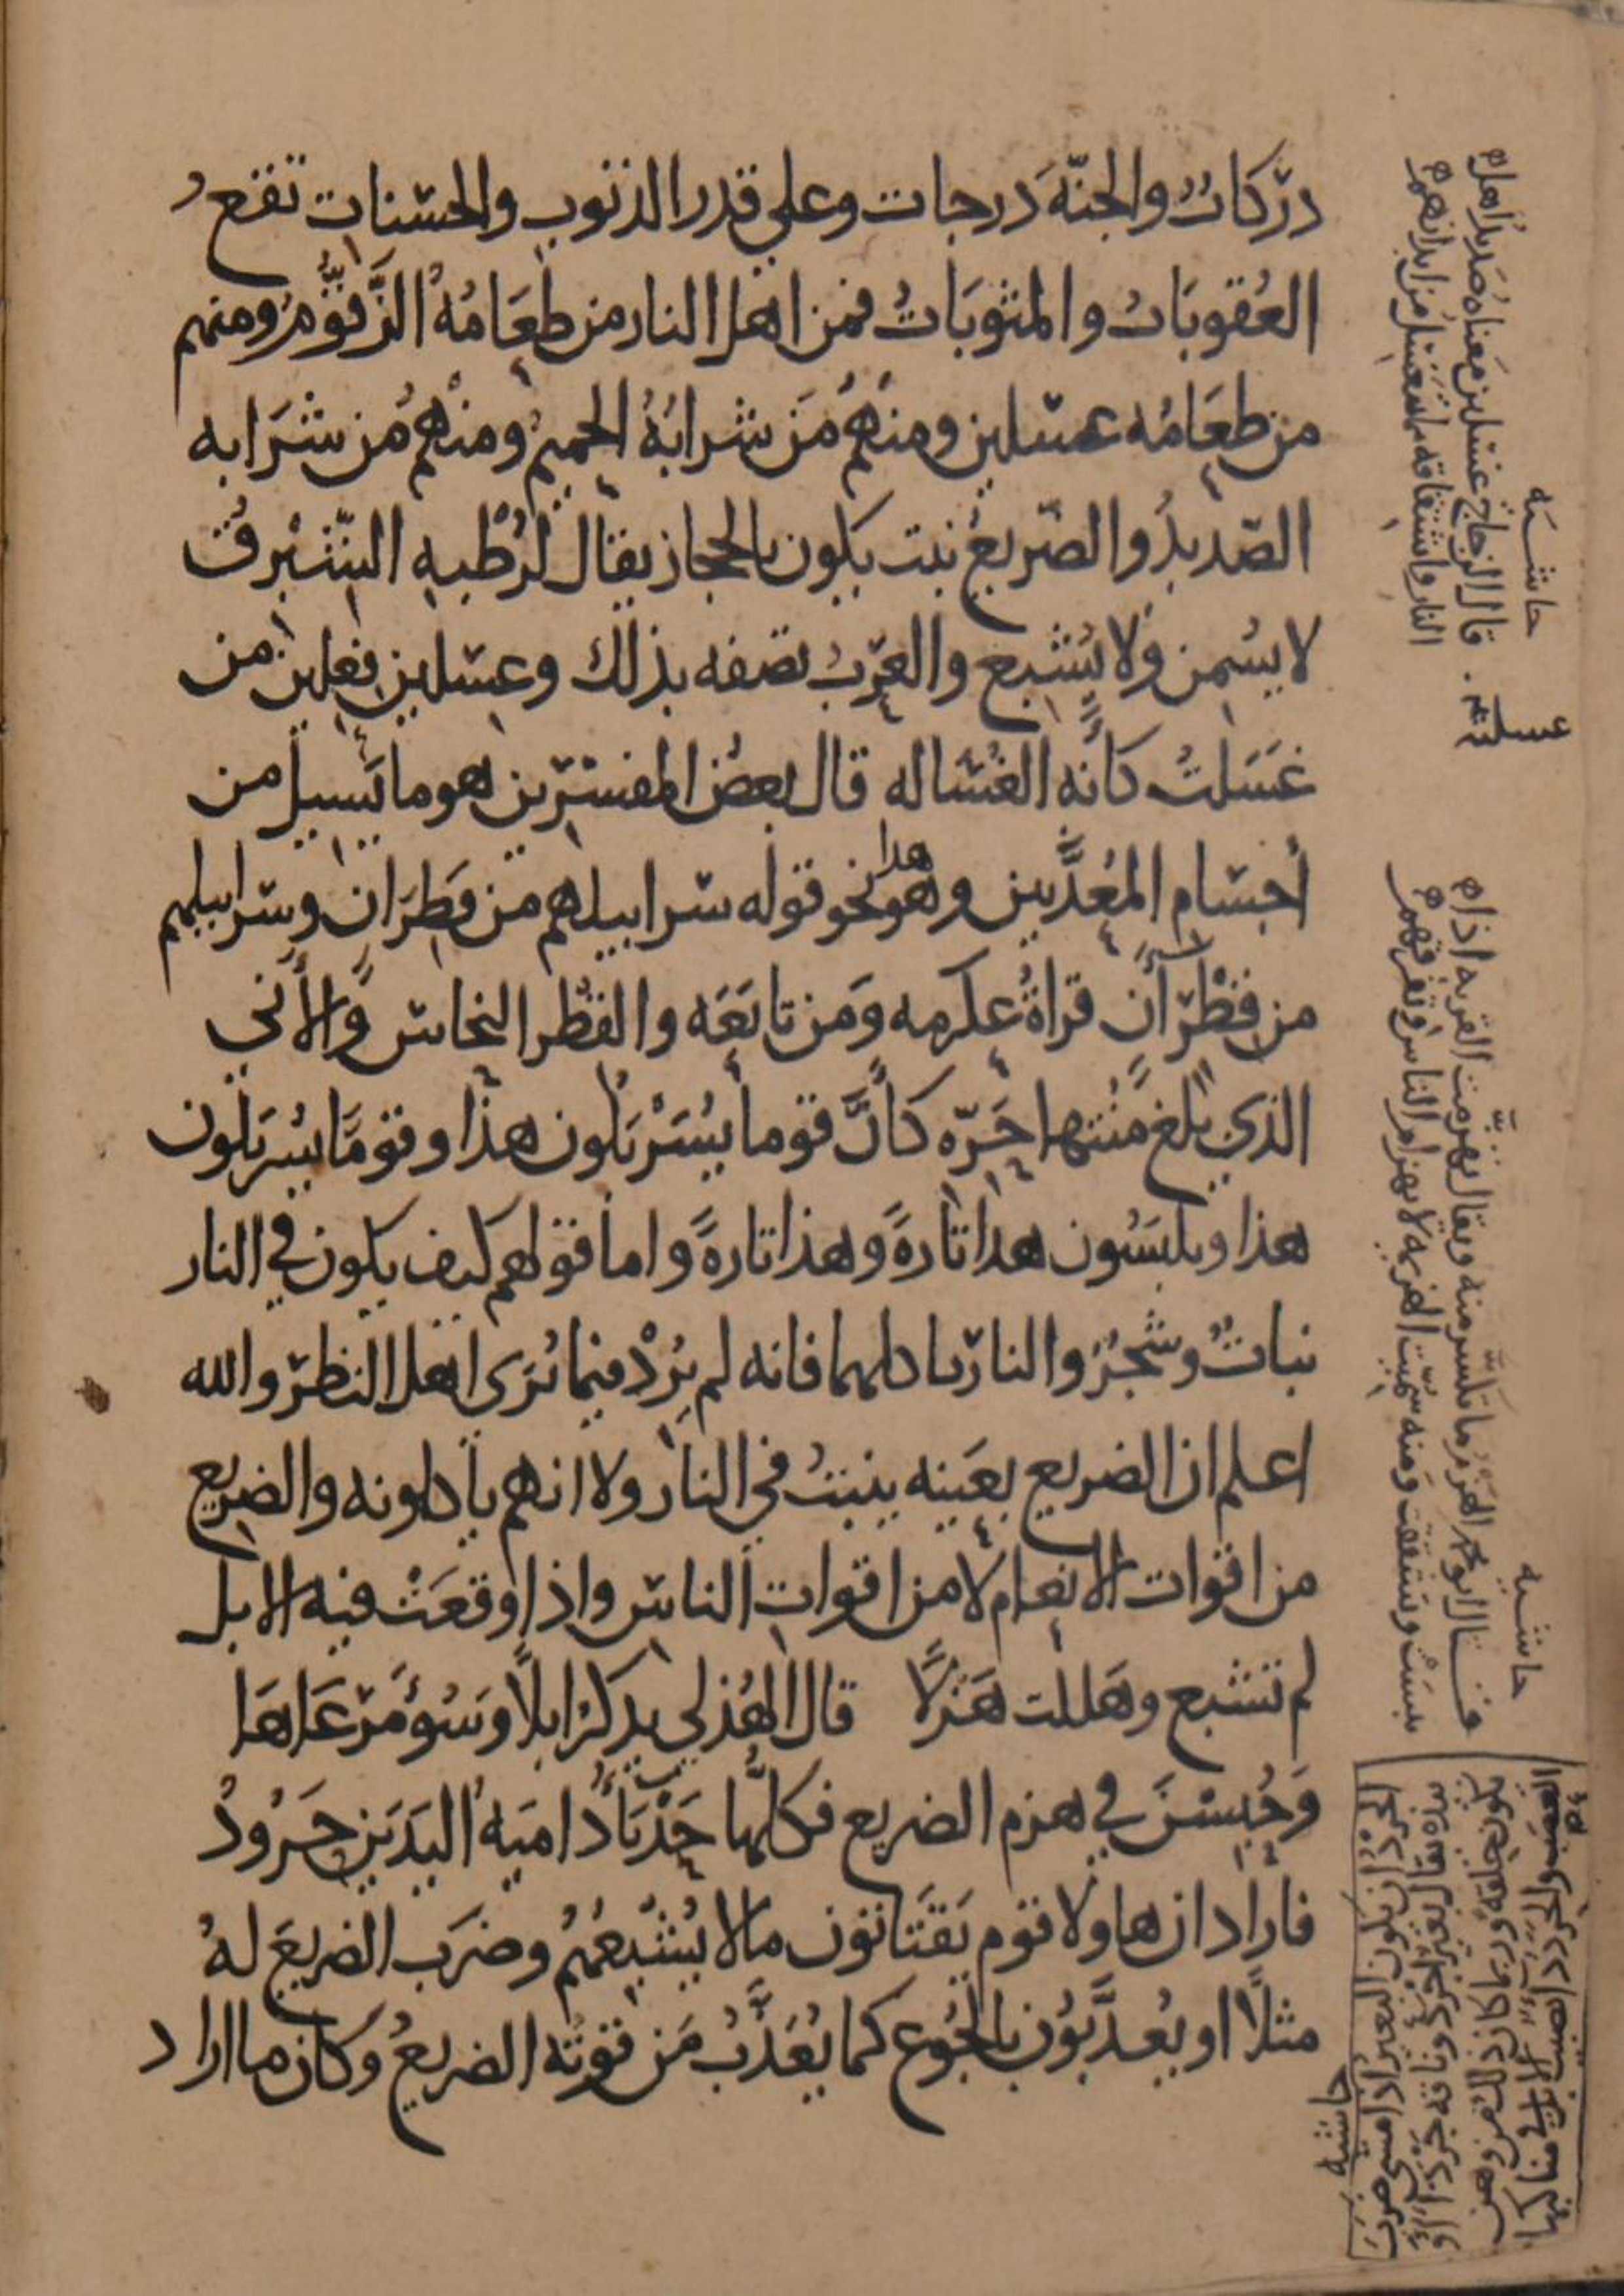 درَكَاتٌ والجنّةَ دَرجات وعلي قدر الذنوب والحسنات تقع
العُقوبَاتُ والمثوبَاتُ فمن اهل النار من طعَامُهُ الزَّقّومُ ومنهم
من طعَامُه غسلين ومنهُم مَن شرابُهُ الحميمُ ومنهُم مَن شَرَابه
الصّديدُ والضّريعُ نبت يكون بالحجاز يقال لرُطْبِهِ الشّبْرِقُ
لا يُسْمِن ولا يُشبع والعَرَبُ تصفه بذلك وغسلين فِعلين من
غَسَلتُ كأنه الغُسَاله قال بعضُ المفسّرين هو ما يَسيل من
أجسَام المعُذَّبين وهو هذا نحو قوله سرابيلهم من قَطِرَان وسرابيلهم
من قِطْرٍ آنٍ قراةُ عكرمه وَمَن تابَعَه والقِطْر النحاس وَالأني
الذي بلغ مُنتها حَرّه كأنَّ قوما يُسَرْبَلُون هذا وقومًا يسربَلون
هذا ويلبَسُون هذا تارةً وهذا تارةً واما قولهم كيف يكون في النار
نباتٌ وشجرٌ والنار تاكلهما فانه لم يُرِدْ فيما يُرَى اهل النظر والله
اعلم ان الضريع بعَينه ينبتُ في النار ولا انهم يأكلونه والضريع
من اقوات الانعام لا من اقوات الناس واذا وقعَتْ فيه الابل
لم تشبع وهلكت هَزلًا قال الهُذلي يذكر ابلًا وسُوءَ مَرْعَاهَا
وَحُبِسْنَ في هزم الضريع فكلُّها حَدْبَاءُ دَامِيَةُ اليَدَين حَرُودُ
فاراد ان هاولا قوم يَقتَاتون مالا يُشبعُهُم وضرَب الضريعَ لهُ
مثلًا او يُعذَّبُون بالجُوع كما يُعَذَّبُ مَن قوتُه الضريعُ وكان ما اراد
حاشيه
قال الزجاج غسلين مَعناهُ صَديدُ اهل
النار واشتقاقه مما ينغسل من ابدانهم
غسلين
حاشيه
قال ابو محمد الهَزْمُ ما تكسّر منه ويقال تهزّمت القربه اذا
يبسَتْ وتشققت ومنه سُمّيت الهزيمه لانهزام الناس وتفرقهم
حاشيه